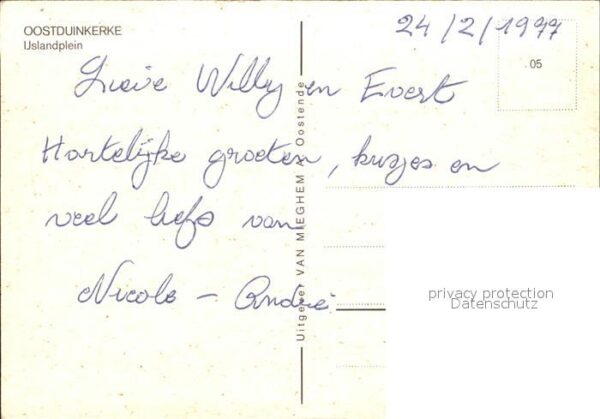 OOSTDUINKERKE
IJslandplein
24/2/1977
05
Lieve Willy en Evert
Hartelijke groeten, kusjes en
veel liefs van
Nicole - André
Uitgever VAN MIEGHEM A. Oostende
privacy protection
Datenschutz